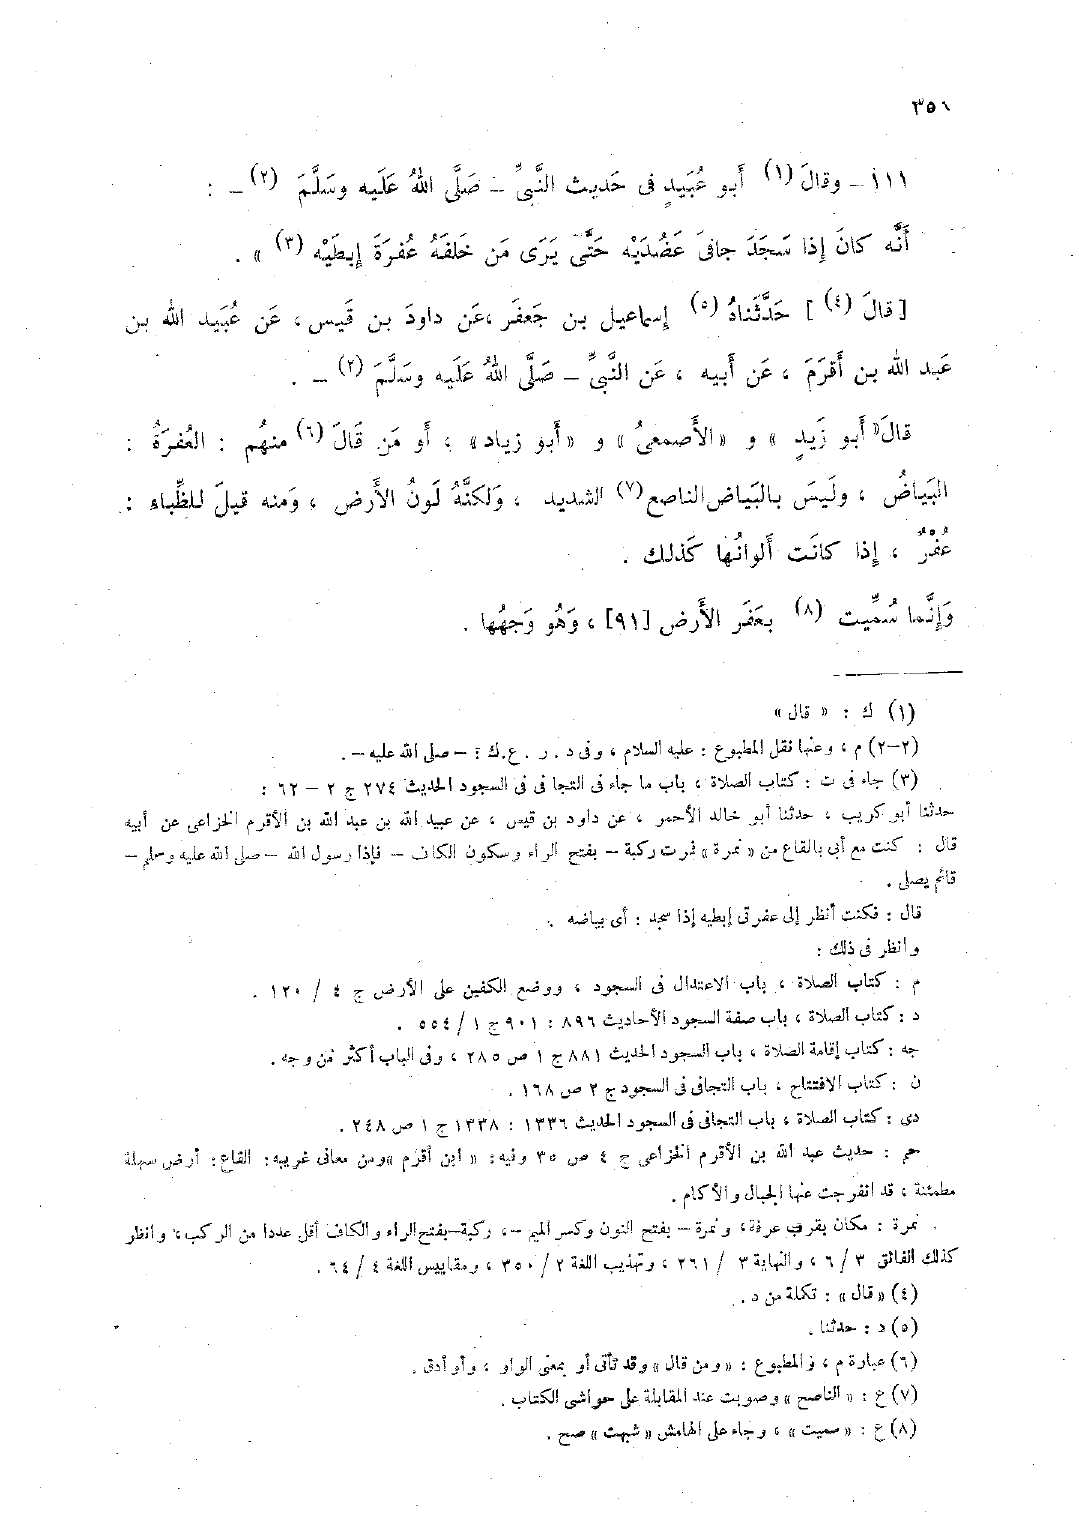 ٣٥٦
١١١ – وقالَ (١) أَبو عُبَيدٍ فى حَديث النَّبىِّ – صَلَّى اللهُ عَلَيه وسَلَّمَ (٢) – :
أَنَّه كانَ إِذا سَجَدَ جافىَ عَضُدَيْه حَتَّى يَرَى مَن خَلفَهُ عُفرَةَ إِبطَيْه (٣) » .
[ قالَ (٤) ] حَدَّثَناهُ (٥) إسماعيل بن جَعفَر ، عَن داودَ بن قَيس ، عَن عُبَيد الله بن
عَبد الله بن أَقرَمَ ، عَن أَبيه ، عَن النَّبىِّ – صَلَّى اللهُ عَلَيه وسَلَّمَ (٢) – .
قالَ « أَبو زَيدٍ » و « الأَصمَعىُّ » و « أَبو زياد » ، أَو مَن قَالَ (٦) منهُم : العُفرَةُ :
البَياضُ ، ولَيسَ بالبَياض الناصع (٧) الشديد ، وَلكنَّهُ لَونُ الأَرض ، وَمنه قيلَ للظِّباء :
عُفْرٌ ، إِذا كانَت أَلوانُها كَذلك .
وَإِنَّما سُمِّيت (٨) بعَفَر الأَرض [٩١] ، وَهُو وَجهُها .
(١) ك : « قال »
(٢–٢) م ، وعنها نقل المطبوع : عليه السلام ، وفى د . ر . ع.ك : – صلى الله عليه –.
(٣) جاء فى ت : كتاب الصلاة ، باب ما جاء فى التجا فى فى السجود الحديث ٢٧٤ ج ٢ – ٦٢ :
حدثنا أبو كريب ، حدثنا أبو خالد الأحمر ، عن داود بن قيس ، عن عبيد الله بن عبد الله بن الأقرم الخزاعى عن أبيه
قال : كنت مع أبى بالقاع من « نمرة » فمرت ركبة – بفتح الراء وسكون الكاف – فإذا رسول الله – صلى الله عليه وسلم –
قائم يصلى .
قال : فكنت أنظر إلى عفرتى إبطيه إذا سجد : أى بياضه .
وانظر فى ذلك :
م : كتاب الصلاة ، باب الاعتدال فى السجود ، ووضع الكفين على الأرض ج ٤ / ١٢٠ .
د : كتاب الصلاة ، باب صفة السجود الأحاديث ٨٩٦ : ٩٠١ ج ١ / ٥٥٤ .
جه : كتاب إقامة الصلاة ، باب السجود الحديث ٨٨١ ج ١ ص ٢٨٥ ، وفى الباب أكثر من وجه .
ن : كتاب الافتتاح ، باب التجافى فى السجود ج ٢ ص ١٦٨ .
دى : كتاب الصلاة ، باب التجافى فى السجود الحديث ١٣٣٦ : ١٣٣٨ ج ١ ص ٢٤٨ .
حم : حديث عبد الله بن الأقرم الخزاعى ج ٤ ص ٣٥ وفيه : « ابن أقرم » ومن معانى غريبه : القاع : أرض سهلة
مطمئنة ، قد انفرجت عنها الجبال والأكام .
نمرة : مكان بقرب عرفة ، ونمرة – بفتح النون وكسر الميم – ، ركبة – بفتح الراء والكاف أقل عددا من الركب ، وانظر
كذلك الفائق ٣ / ٦ ، والنهاية ٣ / ٢٦١ ، وتهذيب اللغة ٢ / ٣٥٠ ، ومقاييس اللغة ٤ / ٦٤ .
(٤) « قال » : تكملة من د .
(٥) د : حدثنا .
(٦) عبارة م ، والمطبوع : « ومن قال » وقد تأتى أو بمعنى الواو ، وأو أدق .
(٧) ع : « الناصح » وصوبت عند المقابلة على حواشى الكتاب .
(٨) ع : « سميت » ، وجاء على الهامش « شبهت » صح .